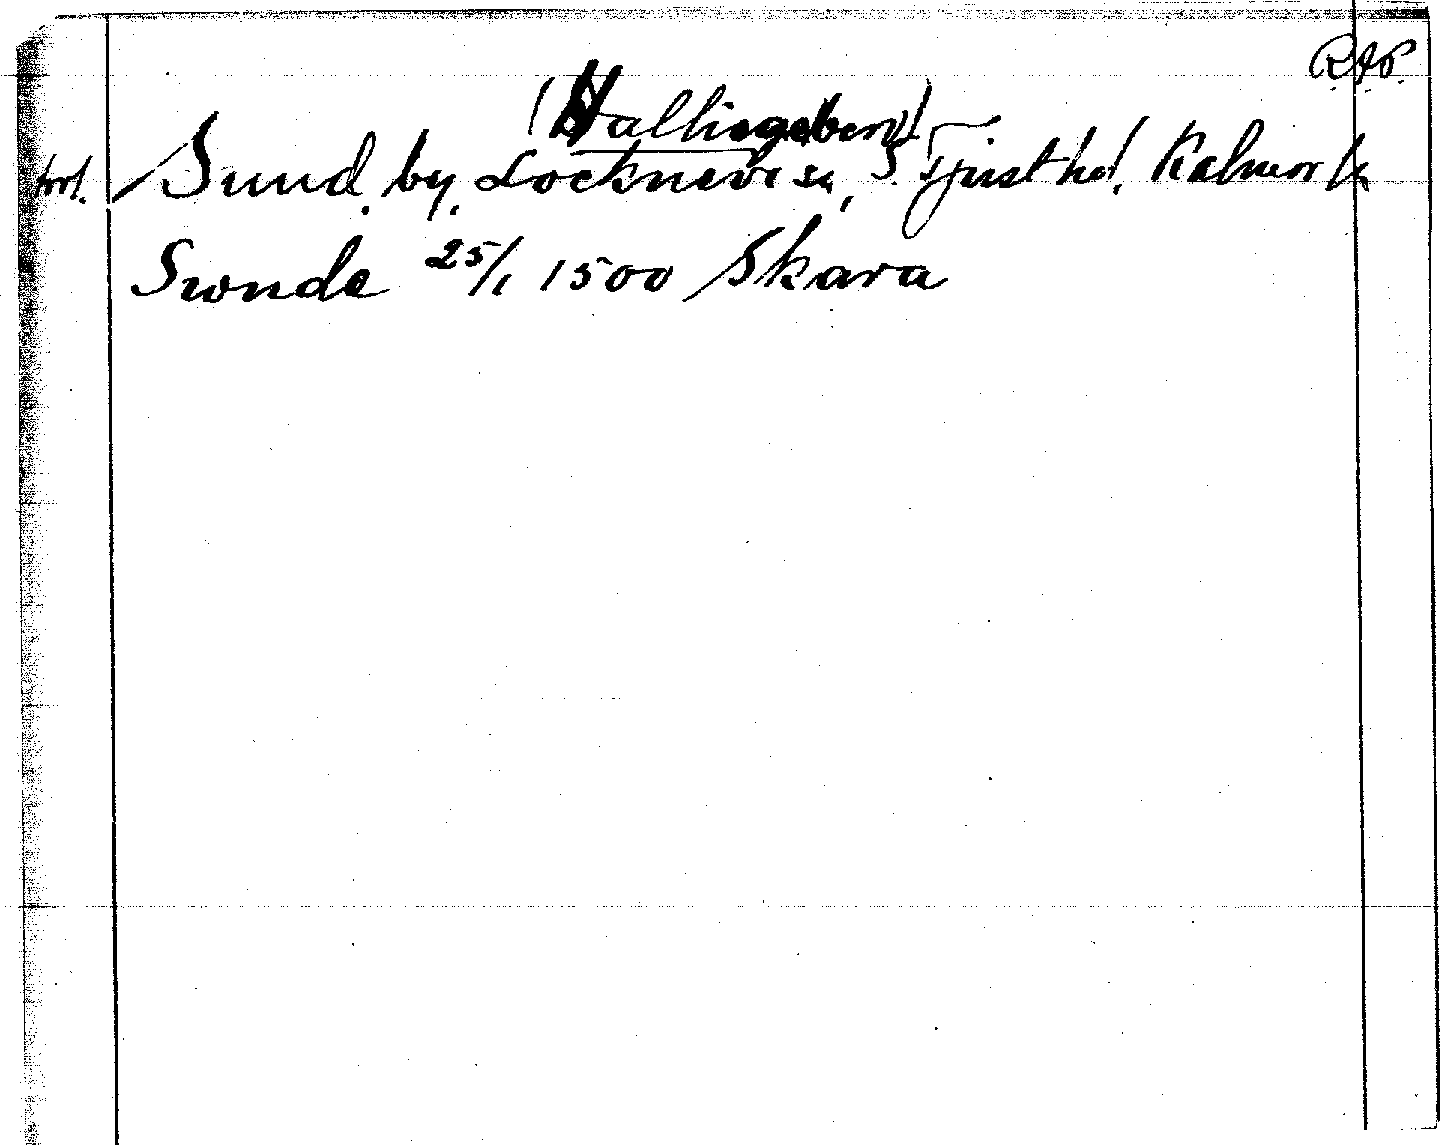 RAP.
(Hallingeberg)
fort. Sund, by, Locknevi sn, S. Tjust hd, Kalmar ln
Swnde 25/1 1500 Skara